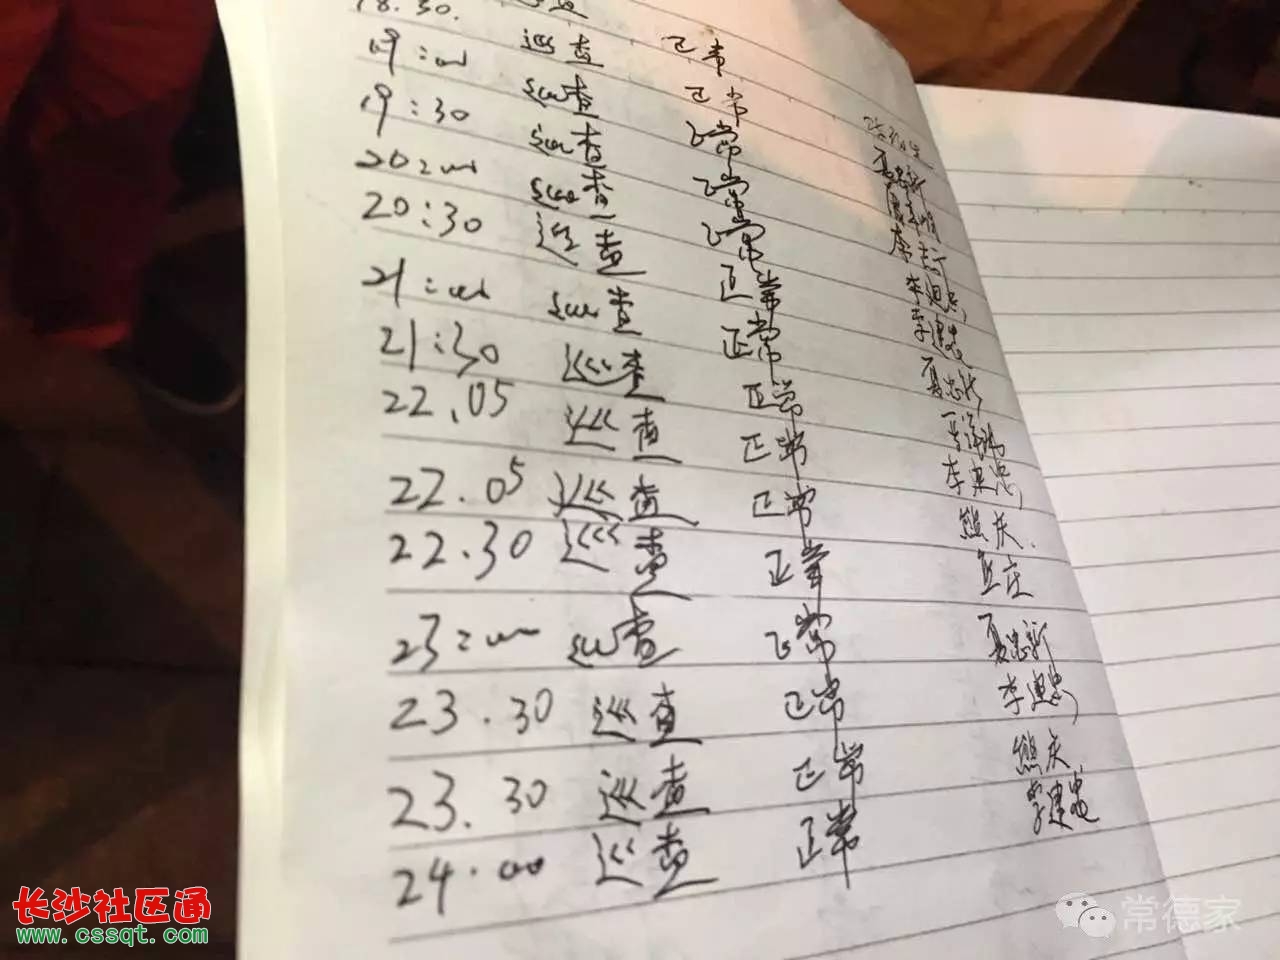 18.30. 查
19:00 巡查 正常
19:30 巡查 正常
20:00 巡查 正常 夏忠新
20:30 巡查 正常
21:00 巡查 正常
21:30 巡查 正常 李建忠
22.05 巡查 正常 李建忠
22.05 巡查 正常 夏忠新
22.30 巡查 正常
23:00 巡查 正常 李建忠
23.30 巡查 正常 熊庆
23.30 巡查 正常
24.00 巡查 正常 夏忠新
李建忠
熊庆
李建忠
长沙社区通
www.cssqt.com
常德家